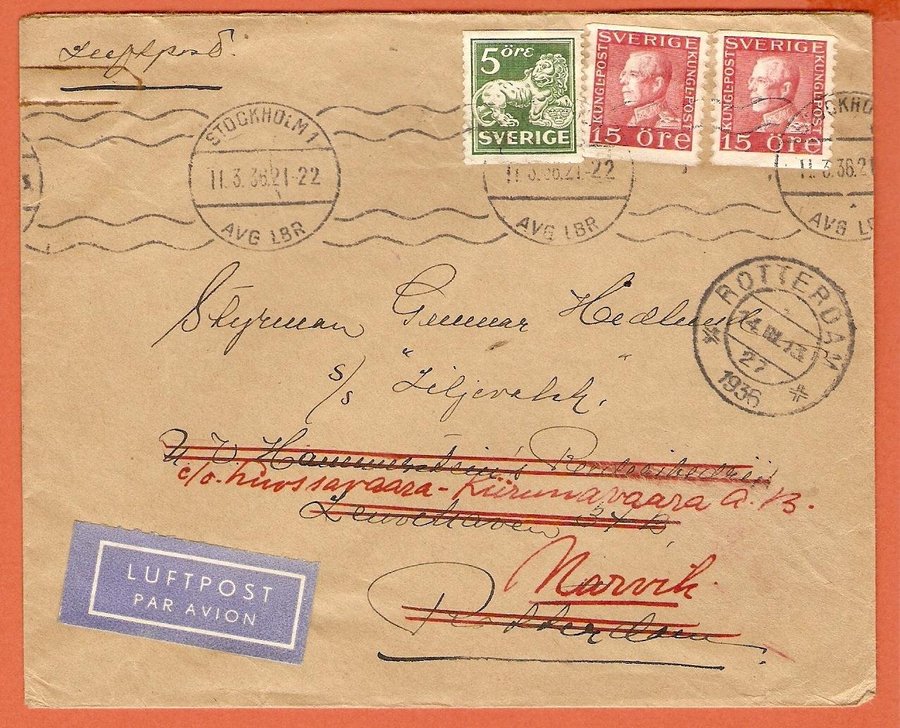 Luftpost.
5 öre
SVERIGE
SVERIGE
KUNGL·POST
KUNGL·POST
15 öre
SVERIGE
KUNGL·POST
KUNGL·POST
15 öre
STOCKHOLM 1
11.3.36.21-22
AVG LBR
11.3.36.21-22
AVG LBR
STOCKHOLM
11.3.36.21
AVG LBR
ROTTERDAM
14.III.13
27
1936
Styrman Gunnar Hedlund
s/s "Liljevalch".
N V Hammerstein's
c/o. Luossavaara-Kiirunavaara A.B.
Leuvehaven
Narvik.
Rotterdam
LUFTPOST
PAR AVION